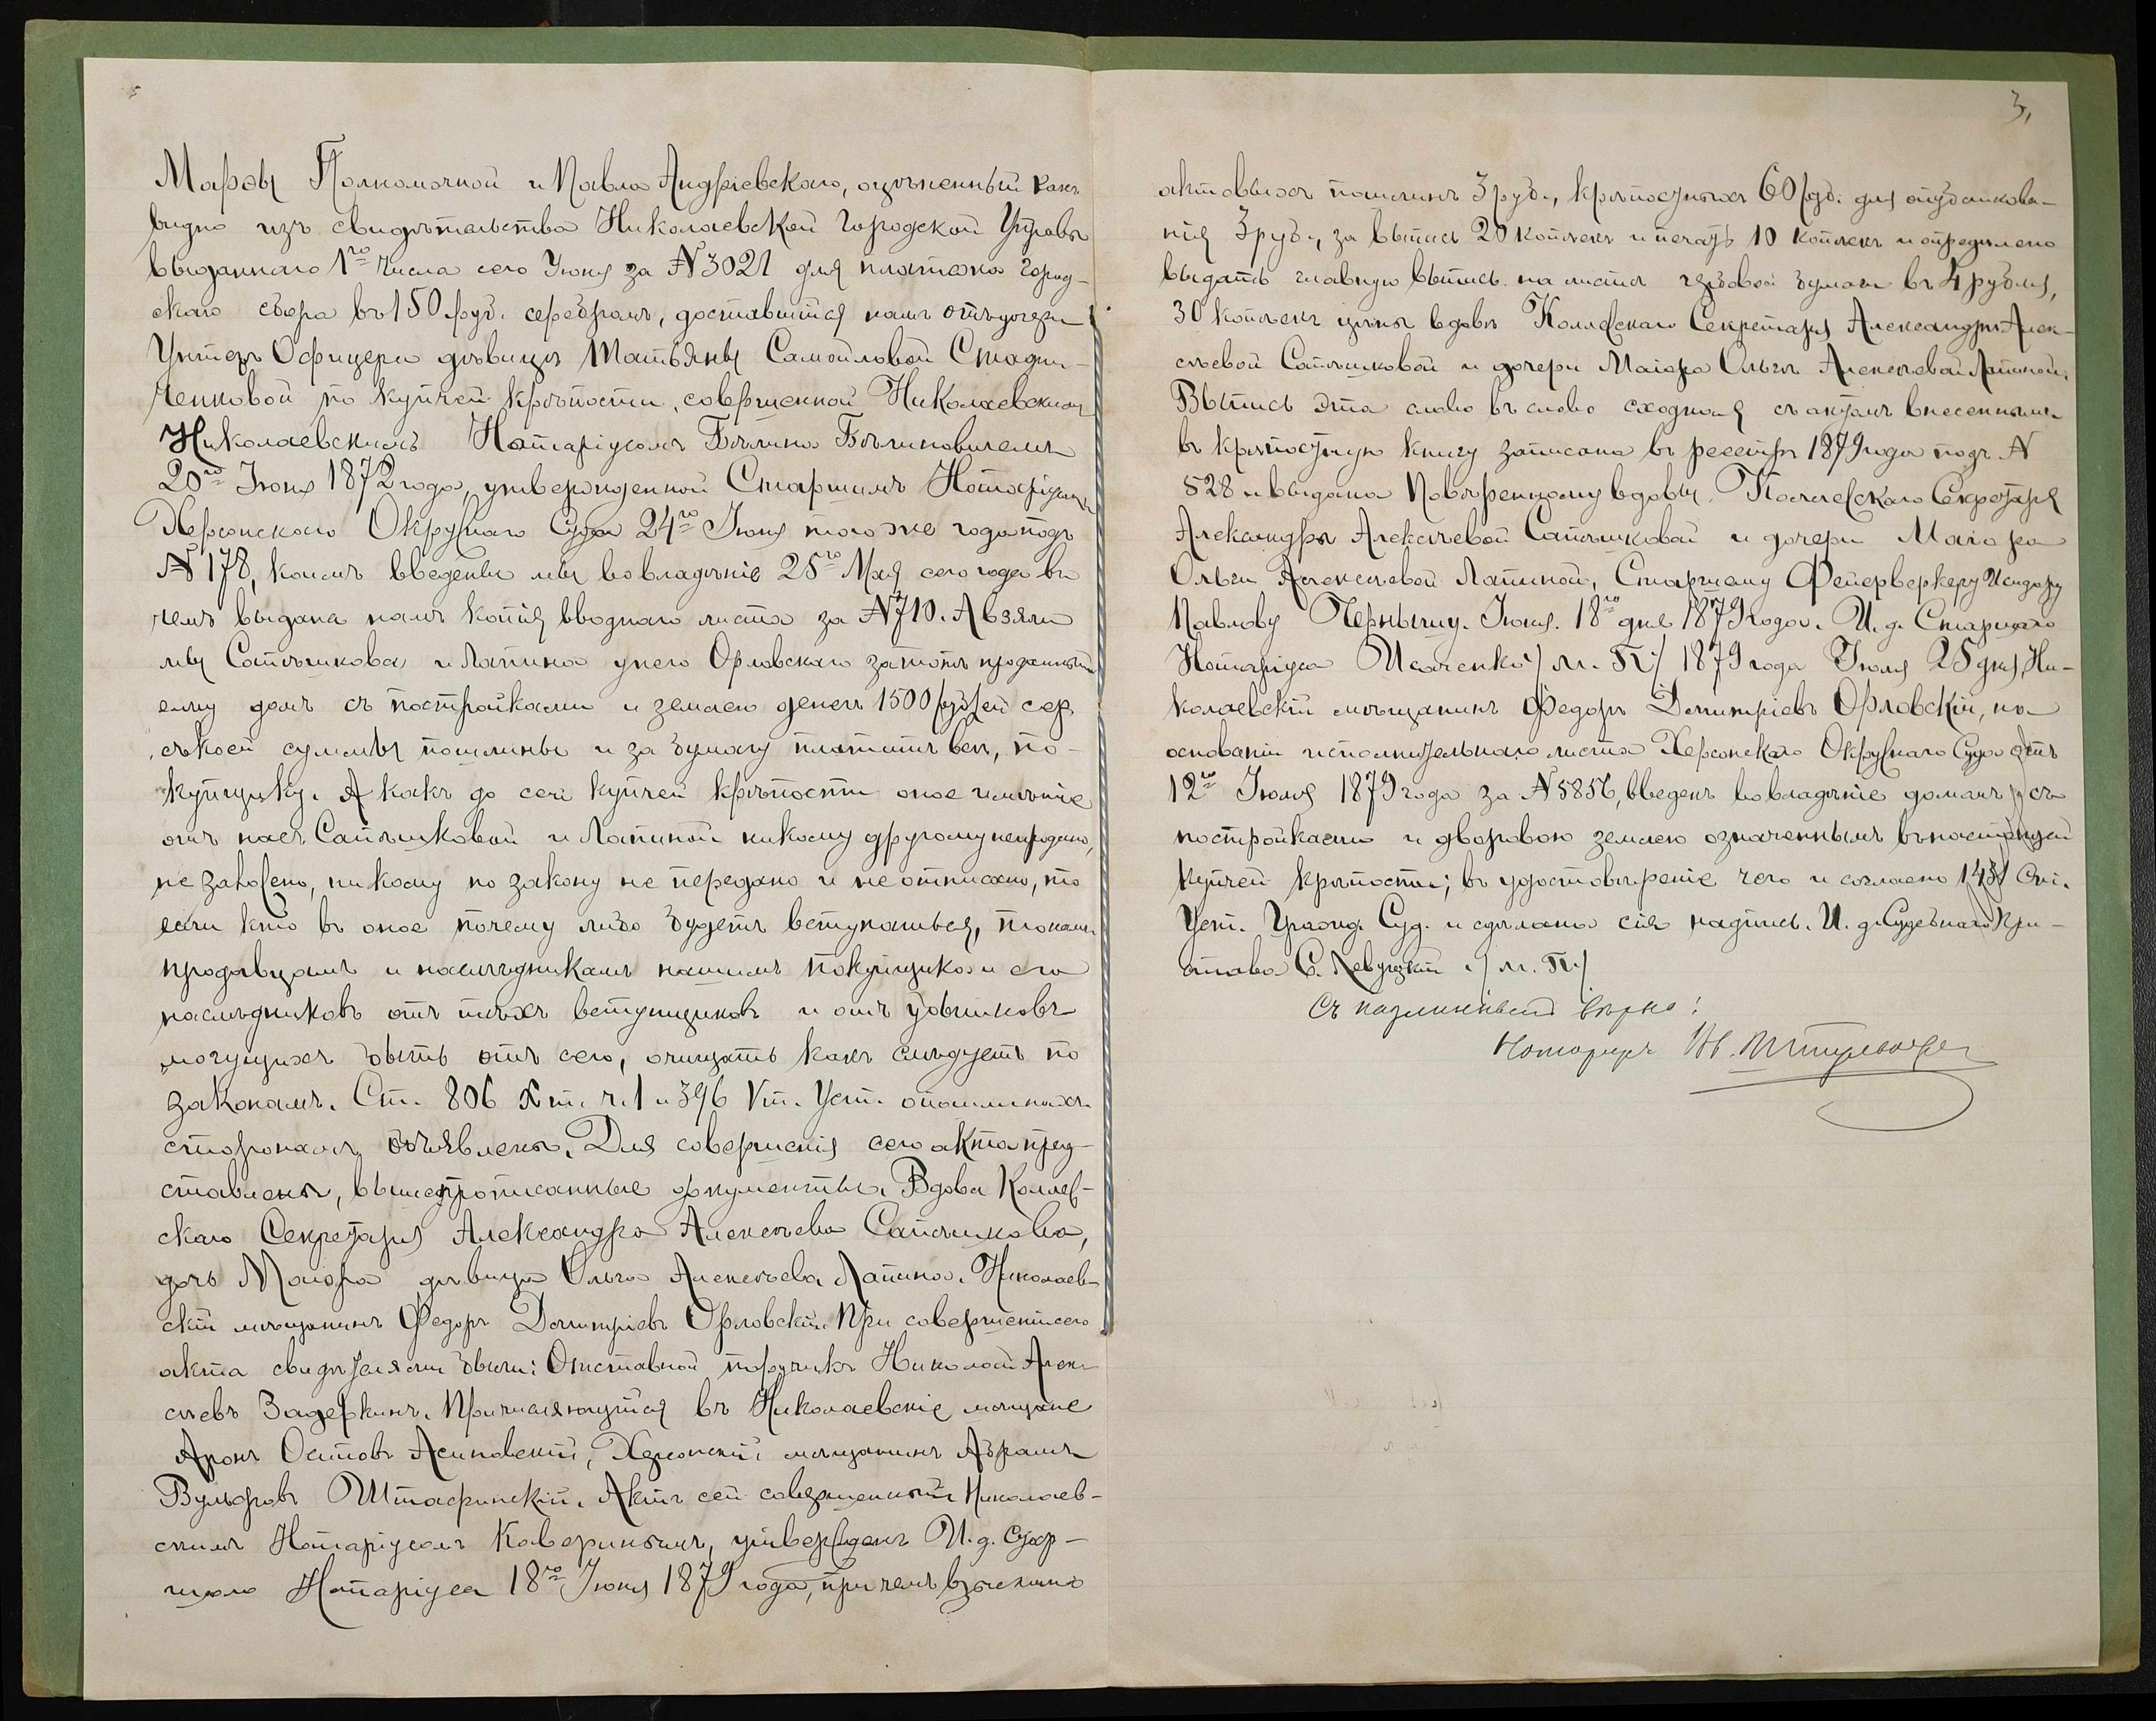 Марѳы Полномочной и Павла Андріевскаго, оцѣненный какъ
видно изъ свидѣтельства Николаевской Городской Управы
выданнаго 1го числа сего Іюня за № 3021 для платежа город-
скаго сбора въ 150 руб. серебромъ, доставшійся намъ отъ дочери
Унтеръ Офицера дѣвицы Татьяны Самойловой
по купчей крѣпости, совершенной Николаевскимъ
Николаевскимъ Нотаріусомъ
20го Іюня 1872 года, утвержденной Старшимъ Нотаріусомъ
Херсонскаго Окружнаго Суда 24го Іюня того же года подъ
№ 178, коимъ введены мы во владѣніе 25го Мая сего года въ
чемъ выдана намъ копія вводнаго листа за № 710. А взяли
мы Сапѣшкова и Лапина у него Орловскаго за тотъ проданный
ему домъ съ постройками и землею денегъ 1500 рублей сер.
съ коей суммы пошлины и за бумагу платить все, по-
купщику. А какъ до сей купчей крѣпости оное имѣніе
отъ насъ Сапѣшковой и Лапиной никому другому непродано,
не заложено, никому по закону не передано и не отписано, то
если кто въ оное почему либо будетъ вступаться, то намъ
продавцамъ и наслѣдникамъ нашимъ покупщика и его
наслѣдниковъ отъ тѣхъ вступщиковъ и отъ убытковъ
могущихъ быть отъ сего, очищать какъ слѣдуетъ по
законамъ. Ст. 806 X т. ч. 1 и 396 V т. Уст. о пошлинахъ
сторонамъ объявлены. Для совершенія сего акта пред-
ставлены, вышепрописанные документы. Вдова Коллеж-
скаго Секретаря Александра Алексѣева Сапѣшкова,
дочь Маіора дѣвица Ольга Алексѣева Лапина. Николаев-
скій мѣщанинъ Федоръ Дмитріевъ Орловскій. При совершеніи сего
акта свидѣтелями были: Отставной поручикъ Николай Алек-
сѣевъ Задеркинъ. Причисляющійся въ Николаевскіе мѣщане
Аронъ Осиповъ Асиновскій, Херсонскій мѣщанинъ Абрамъ
Вульфовъ Штафинскій. Актъ сей совершенный Николаев-
скимъ Нотаріусомъ Каверинымъ, утвержденъ И. д. Стар-
шаго Нотаріуса 18го Іюня 1879 года, при чемъ взыскано
3,
актовыхъ пошлинъ 3 руб., крѣпостныхъ 60 руб. для опубликова-
нія 3 руб., за выпись 20 копѣекъ и печать 10 копѣекъ и опредѣлено
выдать главную выпись на листѣ гербовой бумаги въ 4 рубля,
30 копѣекъ цѣны вдовѣ Коллежскаго Секретаря Александрѣ Алек-
сѣевой Сапѣшковой и дочери Маіора Ольгѣ Алексѣевой Лапиной.
Выпись эта слово въ слово сходная съ актомъ внесеннымъ
въ крѣпостную книгу записана въ реестръ 1879 года подъ №
528 и выдана Повѣренному вдовы Коллежскаго Секретаря
Александры Алексѣевой Сапѣшковой и дочери Маіора
Ольги Алексѣевой Лапиной, Старшему Фейерверкеру Исидору
Павлову Чернышу. Іюня 18го дня 1879 года. И. д. Старшаго
Нотаріуса Исаченко / м. П. / 1879 года Іюля 25 дня, Ни-
колаевскій мѣщанинъ Федоръ Дмитріевъ Орловскій, на
основаніи исполнительнаго листа Херсонскаго Окружнаго Суда отъ
12го Іюля 1879 года за № 5856, введенъ во владѣніе домомъ съ
постройками и дворовою землею означеннымъ въ настоящей
купчей крѣпости; въ удостовѣреніе чего и согласно 1431 Ст.
Уст. Гражд. Суд. и сдѣлана сія надпись. И. д. Судебнаго При-
става С. Левуцкій. / м. П. /
Съ подлиннымъ вѣрно:
Нотаріусъ